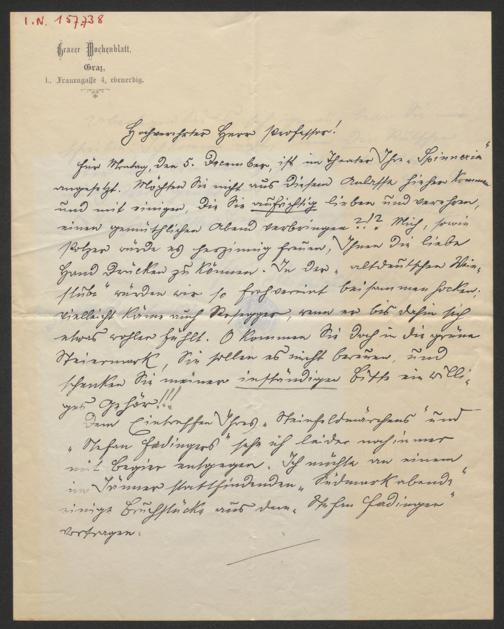 I. N. 157738
Grazer Wochenblatt.
Graz,
I., Frauengasse 4, ebenerdig.
Hochverehrter Herr Professor!
Für Montag, den 5. Dezember, ist im Theater Ihre „Spinnerin“
angesetzt. Möchten Sie nicht aus diesem Anlasse hieher kommen
und mit einigen, die Sie aufrichtig lieben und verehren,
einen gemüthlichen Abend verbringen?!? Mich, sowie
würde es herzinnig freuen, Ihnen die liebe
Hand drücken zu können. In der „altdeutschen Wein-
stube“ würden wir so froh vereint beisammen hocken.
Vielleicht käme auch Rosegger, wenn er bis dahin sich
etwas wohler fühlt. O kommen Sie doch in die grüne
Steiermark, Sie sollen es nicht bereuen, und
schenken Sie meiner inständigen Bitte ein willi-
ges Gehör!!!
Dem Eintreffen Ihres „Steinfeldmärchens“ und
„Stefan Fadingers“ sehe ich leider noch immer
mit Begier entgegen. Ich möchte an einem
im Jänner stattfindenden „Südmarkabende“
einige Bruchstücke aus dem „Stefan Fadinger“
vortragen.